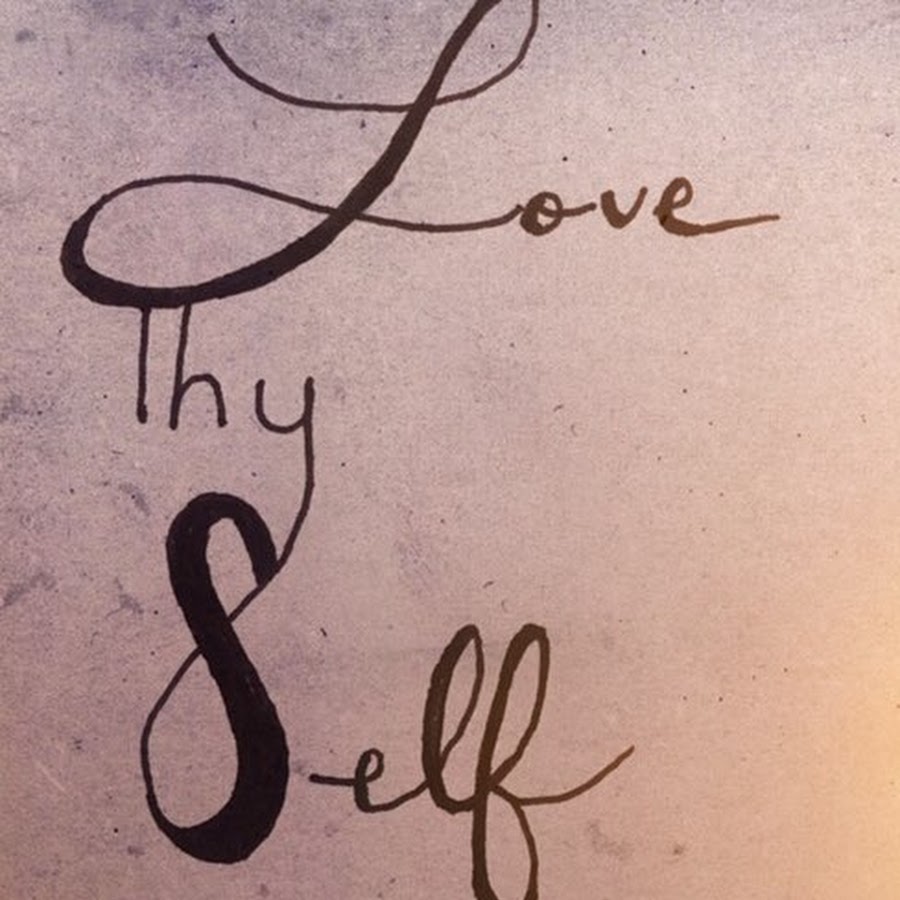 Love
Thy
Self